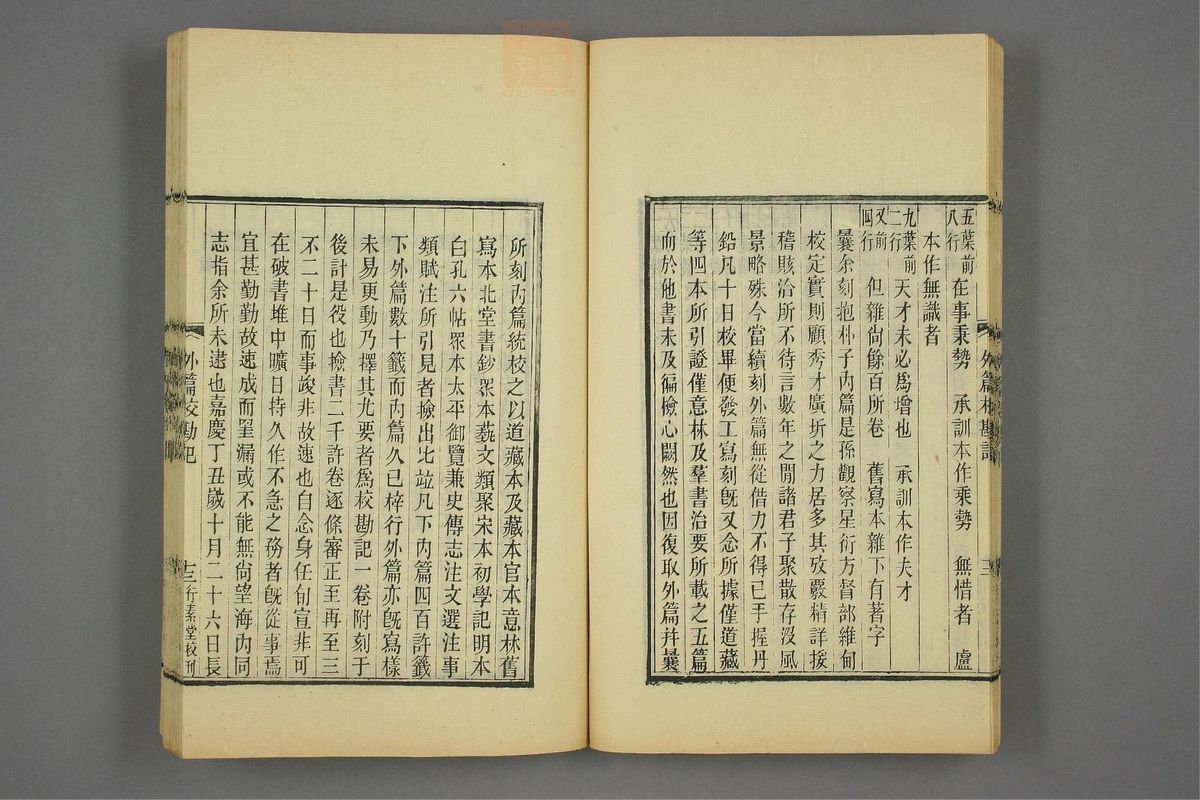 五葉前八行　在事秉勢　承訓本作乘勢　無惜者　盧
本作無識者
九葉前二行　天才未必爲增也　承訓本作夫才
又前四行　但雜尙餘百所卷　舊寫本雜下有著字
曩余刻抱朴子內篇是孫觀察星衍方督部維甸
校定實則顧秀才廣圻之力居多其攷覈精詳援
稽賅洽所不待言數年之閒諸君子聚散存沒風
景略殊今當續刻外篇無從借力不得已手握丹
鉛凡十日校畢便發工寫刻旣又念所據僅道藏
等四本所引證僅意林及羣書治要所載之五篇
而於他書未及徧檢心闕然也因復取外篇幷曩
外篇校勘記
三
所刻內篇統校之以道藏本及藏本官本意林舊
寫本北堂書鈔眾本藝文類聚宋本初學記明本
白孔六帖眾本太平御覽兼史傳志注文選注事
類賦注所引見者檢出比竝凡下內篇四百許籤
下外篇數十籤而內篇久已梓行外篇亦旣寫樣
未易更動乃擇其尤要者爲校勘記一卷附刻于
後計是役也撿書二千許卷逐條審正至再至三
不二十日而事竣非故速也自念身任旬宣非可
在破書堆中曠日持久作不急之務者旣從事焉
宜甚勤勤故速成而罣漏或不能無尙望海內同
志指余所未逮也嘉慶丁丑歲十月二十六日長
外篇校勘記
十三
行素堂校刊